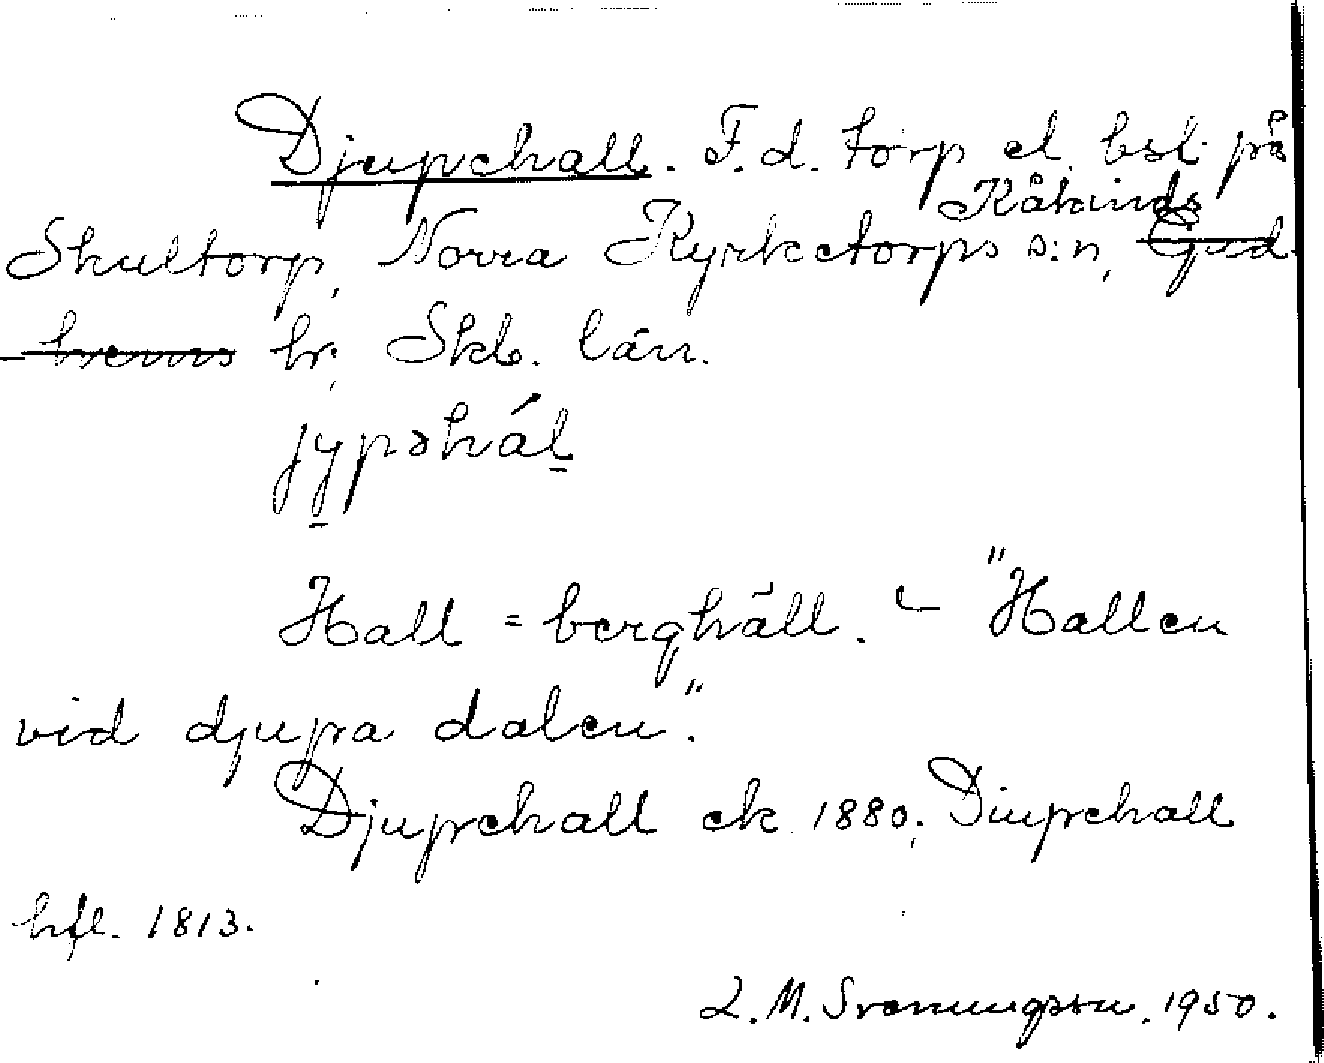 Djupehall. F.d. torp el. bsl. på
Skultorp, Norra Kyrketorps s:n, Kåkinds ~~Gud-~~
~~hems~~ hr, Skb. län.
jypəhál
Hall = berghäll. – "Hallen
vid djupa dalen".
Djupehall ek 1880; Diupehall
hfl. 1813.
L.M. Svenungsson. 1950.